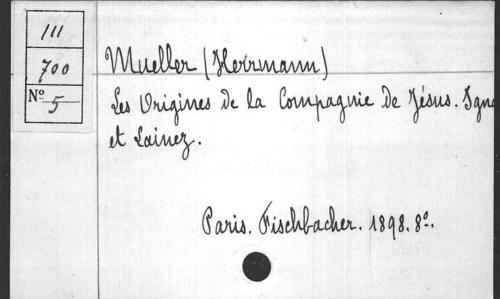 111
700
Nº 5
Mueller (Herrmann)
Les Origines de la Compagnie de Jésus. Igna
et Lainez.
Paris. Fischbacher. 1898. 8º.